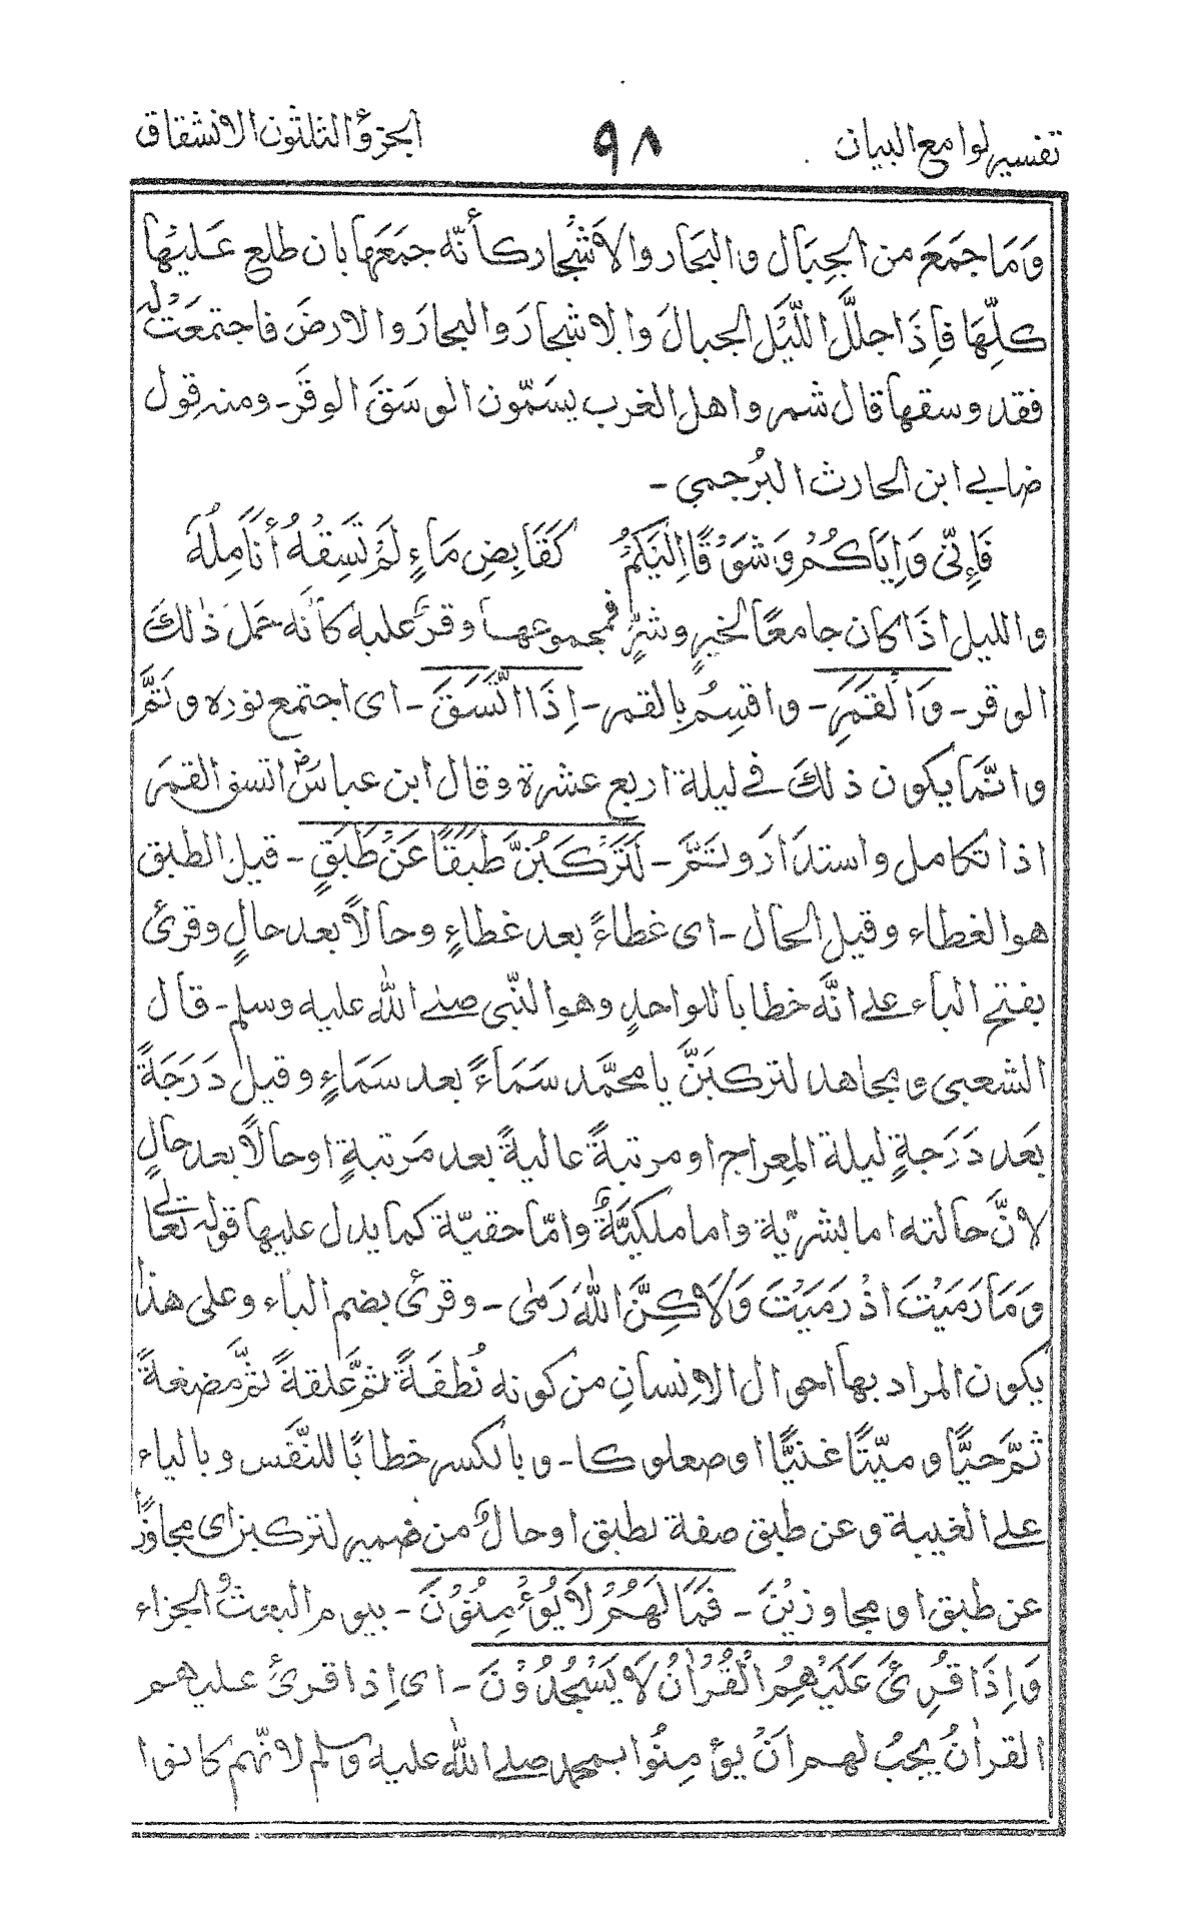 تفسير لوامع البيان ٩٨ الجزؤ الثلثون الانشقاق
وَمَا جَمَعَ من الجِبَال والبحار والاَشْجار كأنّه جمَعَها بان طلع عَليْها
كلِّهَا فاِذَا جلَّلَ اللَّيْل الجبالَ والاشجارَ والبحارَ والارضَ فاجتمعَتْ لَهُ
فقد وسقها قال شمر واهل الغرب يسَمّون الوسَقَ الوقَر۔ ومنه قول
ضابے ابن الحارث البُرجمي۔
فَاِنّى وَاِيَاكُمْ وَشَوْقًا اِلَيْكُمْ كَقَابِضِ مَاءٍ لَمْ تَسِقْهُ أَنَامِلُهْ
والليل اذَا كان جامعًا لخيرٍ وشرٍّ فمجموعها وقرٌ عليه كأنه حمَلَ ذٰلكَ
الوقر۔ وَالْقَمَرِ۔ واقسِمُ بالقمر۔ اِذَا اتَّسَقَ۔ اى اجتمع نوره وتَمَّ
وانَّما يكون ذلكَ فے ليلة اربع عشرة وقال ابن عباسؓ اتسق القمَر
اذا تكامل واستدَارَ وتَمَّ۔ لَتَرْكَبُنَّ طَبَقًا عَنْ طَبَقٍ۔ قيل الطبق
هو الغطاء وقيل الحال۔ اى غطاءً بعد غطاءٍ وحالاً بعد حالٍ وقرئ
بفتح الباء علے انَّه خطابا للواحدِ وهو النّبى صلے اللّٰه عليه وسلم۔ قال
الشعبى ومجاهد لتركبَنَّ يا محمَّد سَمَاءً بعد سَمَاءٍ وقيل دَرَجَةً
بَعد دَرَجةٍ ليلة المِعراج او مرتبةً عاليةً بعد مَرتبةٍ او حالاً بعد حالٍ
لانَّ حالته اما بشريّة واما ملكيَّةٌ وامّا حقيّة كما يدل عليها قوله تعالٰے
وَمَا رَمَيْتَ اذْ رَمَيْتَ وَلاَكِنَّ اللّٰهَ رَمٰى۔ وقرئ بضم الباء وعلى هذا
يكون المراد بها احوال الاِنسانِ من كونه نُطفَةً ثمَّ علقةً ثمَّ مضغةً
ثمَّ حيًّا وميّتًا غنيًّا او صعلوكا۔ وبالكسر خطابًا للنَّفس وبالياء
علے الغيبة وعن طبق صفة لطبق او حالٌ من ضمير لتركبن اى مجاوزًا
عن طبق او مجاوزيْنَ۔ فَمَا لَهُمْ لاَ يُؤْمِنُوْنَ۔ بيوم البعثُ والجزاء
وَاِذَا قُرِئَ عَلَيْهِمُ الْقُرْاٰنُ لاَ يَسْجُدُوْنَ۔ اى اِذا قرئَ عليهم
القراٰنُ يجبُ لهم انْ يؤمِنُوا بمحمد صلے اللّٰه عليه وسلم لانّهم كانوا